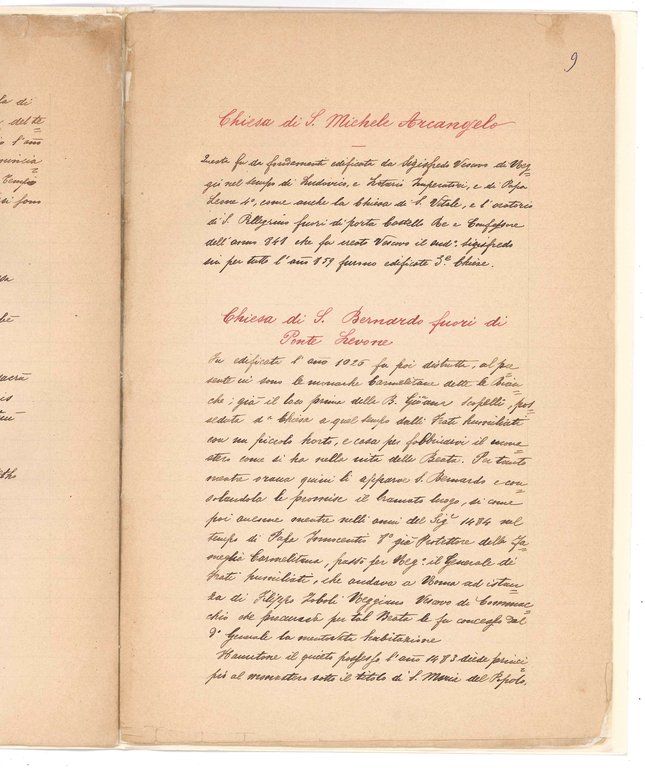 la di
del te=
o l'año
nuncia=
Tempio
si fons
sa
be
sacra
is
tho
9
Chiesa di S. Michele Arcangelo
Questa fu da fondamenti edificata da Sigisfredo Vescovo di Reg=
gio nel tempo di Ludovico, e Lotario Imperatori, e di Papa
Leone 4°, come anche la Chiesa di S. Vitale, e l'oratorio
di S. Pellegrino fuori di porta Castello Re e Confessore
dell'anno 848 che fu creato Vescovo il sud°. Sigisfredo
sin per tutto l'año 859 furono edificate 3e. Chiese.
Chiesa di S. Bernardo fuori di
Ponte Levone
Fu edificata l'año 1026 fu poi distrutta, al pre=
sente vi sono le monache Carmelitane dette le Bian=
che; già il loco prima della B. Gioãna Scopelli, pos=
seduta da Chiesa a quel tempo dalli Frati humiliati
con un piccolo horto, e casa per fabbricarvi il mona=
stero come si ha nella vita della Beata. Per tanto
mentre orava quivi li apparve S. Bernardo e con=
solandola le promise il bramato luogo, si come
poi avenne mentre nelli anni del Sigr. 1484 nel
tempo di Papa Innocentio 8° già Protettore della Fa=
meglia Carmelitana, passò per Regº. il Generale di
Frati humiliati, che andava a Roma ad istan=
za di Filippo Zoboli Reggiano Vescovo di Commac=
chio che procurava per tal Beata le fu concesso dal
d° Generale la mentovata habitazione
Havutone il quieto possesso l'año 1483 diede princi=
pio al monastero sotto il titolo di S. Maria del Popolo.